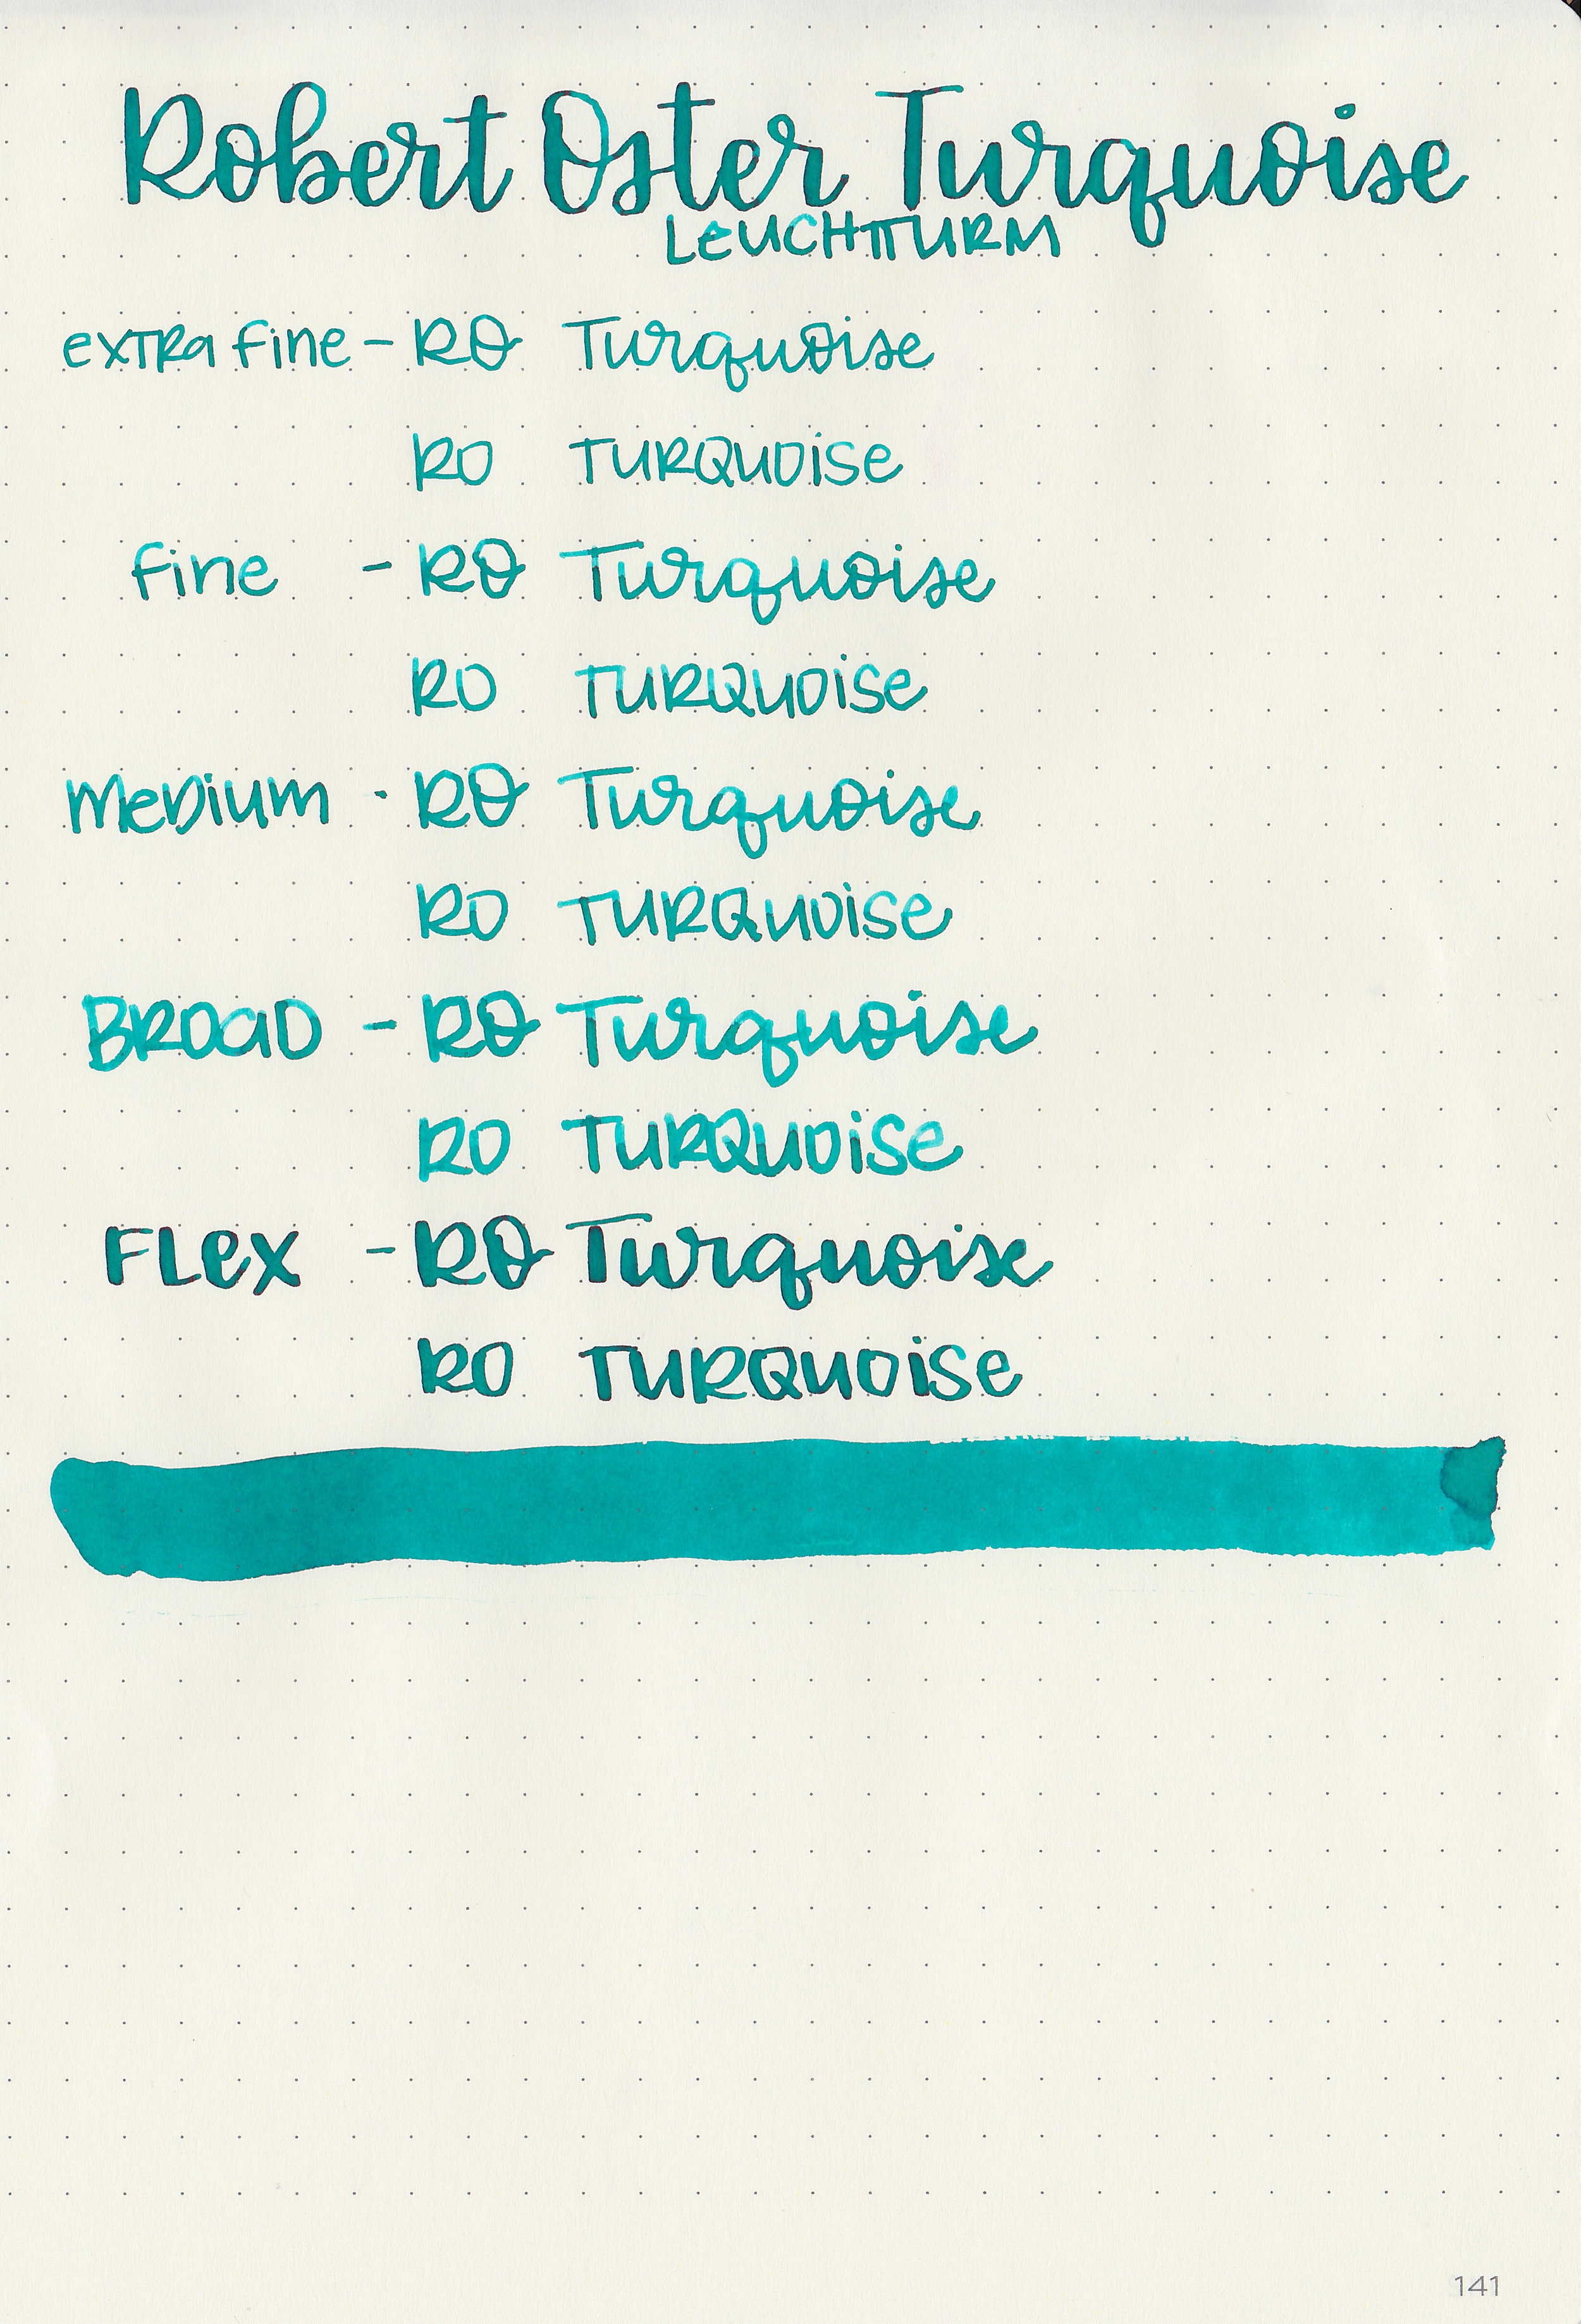 Robert Oster Turquoise
LEUCHTTURM
extra fine - RO Turquoise
RO TURQUOISE
fine - RO Turquoise
RO TURQUOISE
Medium - RO Turquoise
RO TURQUOISE
BROAD - RO Turquoise
RO TURQUOISE
FLex - RO Turquoise
RO TURQUOISE
141